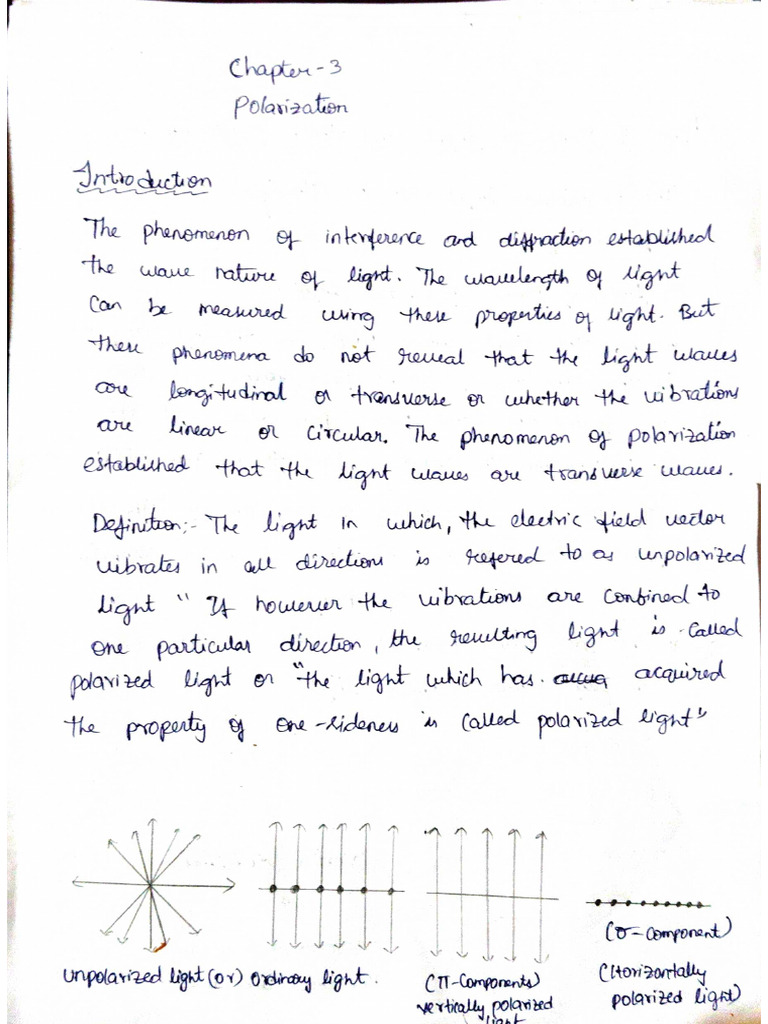 Chapter-3
Polarization
Introduction
The phenomenon of interference and diffraction established
the wave nature of light. The wavelength of light
can be measured using these properties of light. But
these phenomena do not reveal that the light waves
are longitudinal or transverse or whether the vibrations
are linear or circular. The phenomenon of polarization
established that the light waves are transverse waves.
Definition:- The light in which, the electric field vector
vibrates in all directions is refered to as unpolarized
light " If however the vibrations are confined to
one particular direction, the resulting light is called
polarized light or "the light which has acquired
the property of one-sideness is called polarized light"
unpolarized light (or) ordinary light.
(π-Components)
vertically polarized
light
(σ-component)
(Horizontally
polarized light)